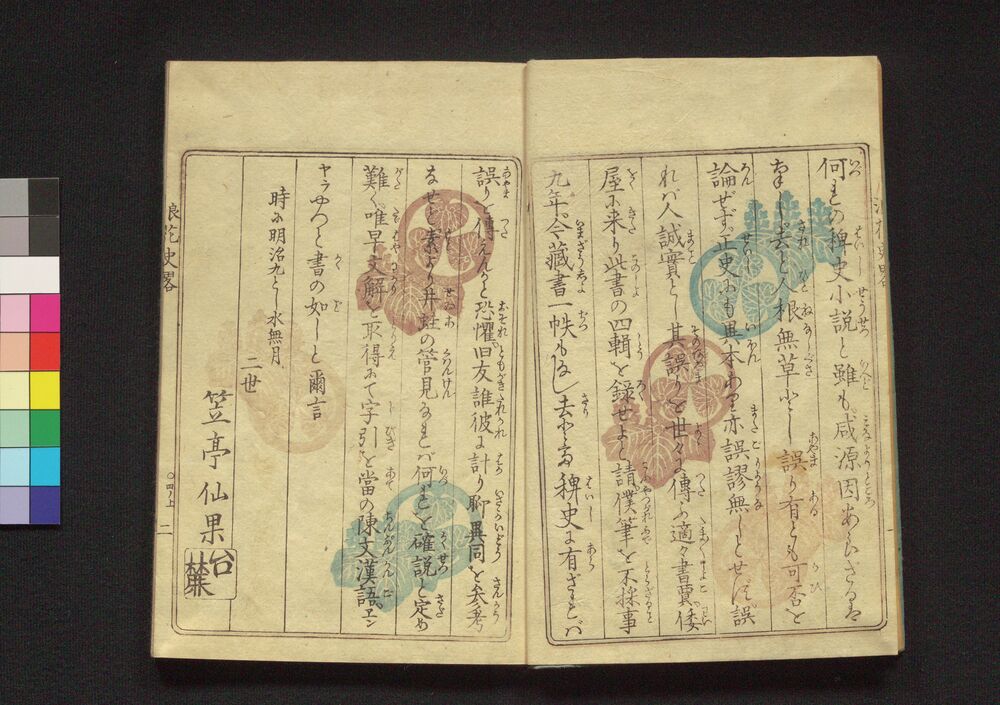 何れの稗史小説と雖も咸源因あらざるは
なし去ど人根無草とし誤り有とも可否を
論ぜず正史にも異本あり亦誤謬無しとせず誤
れバ人誠實とし其誤りを世々に傳ふ適々書賈倭
屋に来り此書の四輯を録せよと請僕筆を不採事
九年今藏書一帙もなし去ど稗史に有ざれバ
誤りを傳えんかと恐懼旧友誰彼に計り聊異同を参考
なせど素より井蛙の管見なれバ何れを確説と定め
難く唯早文解りを取得にて字引を當の陳文漢語エン
ヤラやつと書の如しと爾言
時に明治九とし水無月
二世
笠亭仙果
浪花史畧
〇四ノ上
二